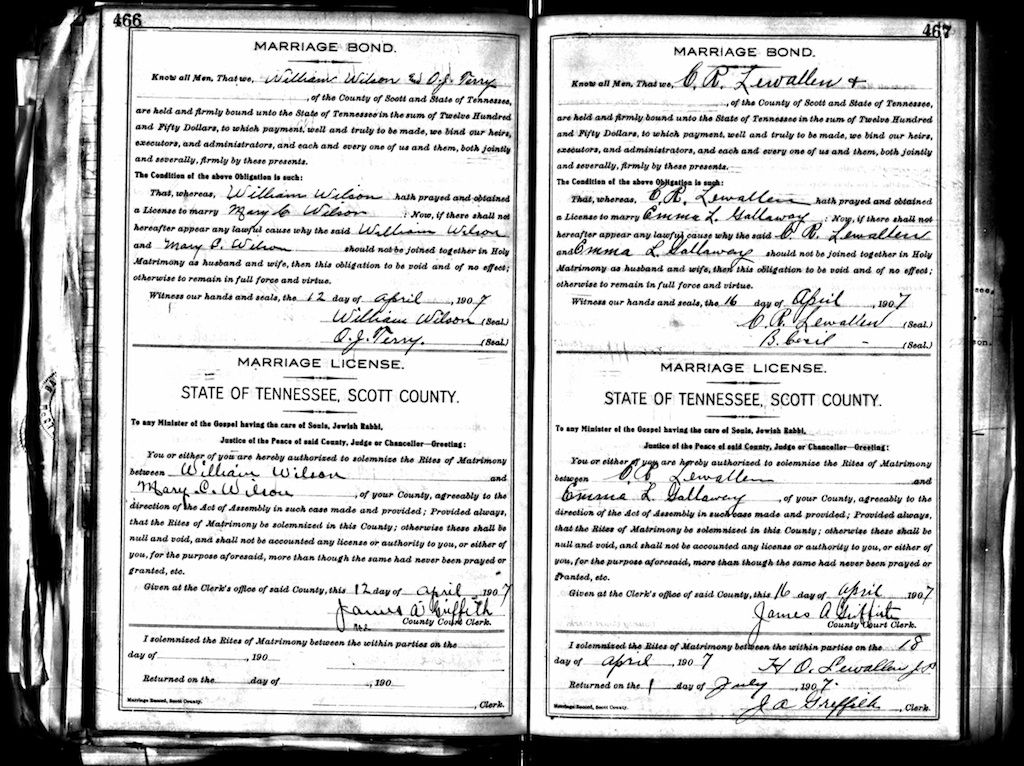 466
MARRIAGE BOND.
Know all Men, That we, William Wilson and O. J. Terry
, of the County of Scott and State of Tennessee,
are held and firmly bound unto the State of Tennessee in the sum of Twelve Hundred
and Fifty Dollars, to which payment, well and truly to be made, we bind our heirs,
executors, and administrators, and each and every one of us and them, both jointly
and severally, firmly by these presents.
The Condition of the above Obligation is such:
That, whereas, William Wilson hath prayed and obtained
a License to marry Mary C Wilson : Now, if there shall not
hereafter appear any lawful cause why the said William Wilson
and Mary C. Wilson should not be joined together in Holy
Matrimony as husband and wife, then this obligation to be void and of no effect;
otherwise to remain in full force and virtue.
Witness our hands and seals, the 12 day of April , 1907
William Wilson (Seal.)
O. J. Terry. (Seal.)
MARRIAGE LICENSE.
STATE OF TENNESSEE, SCOTT COUNTY.
To any Minister of the Gospel having the care of Souls, Jewish Rabbi,
Justice of the Peace of said County, Judge or Chancellor—Greeting:
You or either of you are hereby authorized to solemnize the Rites of Matrimony
between William Wilson and
Mary C. Wilson , of your County, agreeably to the
direction of the Act of Assembly in such case made and provided; Provided always,
that the Rites of Matrimony be solemnized in this County; otherwise these shall be
null and void, and shall not be accounted any license or authority to you, or either of
you, for the purpose aforesaid, more than though the same had never been prayed or
granted, etc.
Given at the Clerk's office of said County, this 12 day of April 1907
James A Griffith
County Court Clerk.
I solemnized the Rites of Matrimony between the within parties on the
day of , 190
Returned on the day of , 190
Marriage Record, Scott County. , Clerk.
467
MARRIAGE BOND.
Know all Men, That we, C. R. Lewallen &
, of the County of Scott and State of Tennessee,
are held and firmly bound unto the State of Tennessee in the sum of Twelve Hundred
and Fifty Dollars, to which payment, well and truly to be made, we bind our heirs,
executors, and administrators, and each and every one of us and them, both jointly
and severally, firmly by these presents.
The Condition of the above Obligation is such:
That, whereas, C. R. Lewallen hath prayed and obtained
a License to marry Emma L. Gallaway : Now, if there shall not
hereafter appear any lawful cause why the said C. R. Lewallen
and Emma L Gallaway should not be joined together in Holy
Matrimony as husband and wife, then this obligation to be void and of no effect;
otherwise to remain in full force and virtue.
Witness our hands and seals, the 16 day of April , 1907
C. R. Lewallen (Seal.)
B. Cecil (Seal.)
MARRIAGE LICENSE.
STATE OF TENNESSEE, SCOTT COUNTY.
To any Minister of the Gospel having the care of Souls, Jewish Rabbi,
Justice of the Peace of said County, Judge or Chancellor—Greeting:
You or either of you are hereby authorized to solemnize the Rites of Matrimony
between C. R. Lewallen and
Emma L. Gallaway , of your County, agreeably to the
direction of the Act of Assembly in such case made and provided; Provided always,
that the Rites of Matrimony be solemnized in this County; otherwise these shall be
null and void, and shall not be accounted any license or authority to you, or either of
you, for the purpose aforesaid, more than though the same had never been prayed or
granted, etc.
Given at the Clerk's office of said County, this 16 day of April 1907
James A Griffith
County Court Clerk.
I solemnized the Rites of Matrimony between the within parties on the 18
day of April , 1907 H O. Lewallen J.P
Returned on the 1 day of July , 1907.
Marriage Record, Scott County. J A Griffith , Clerk.